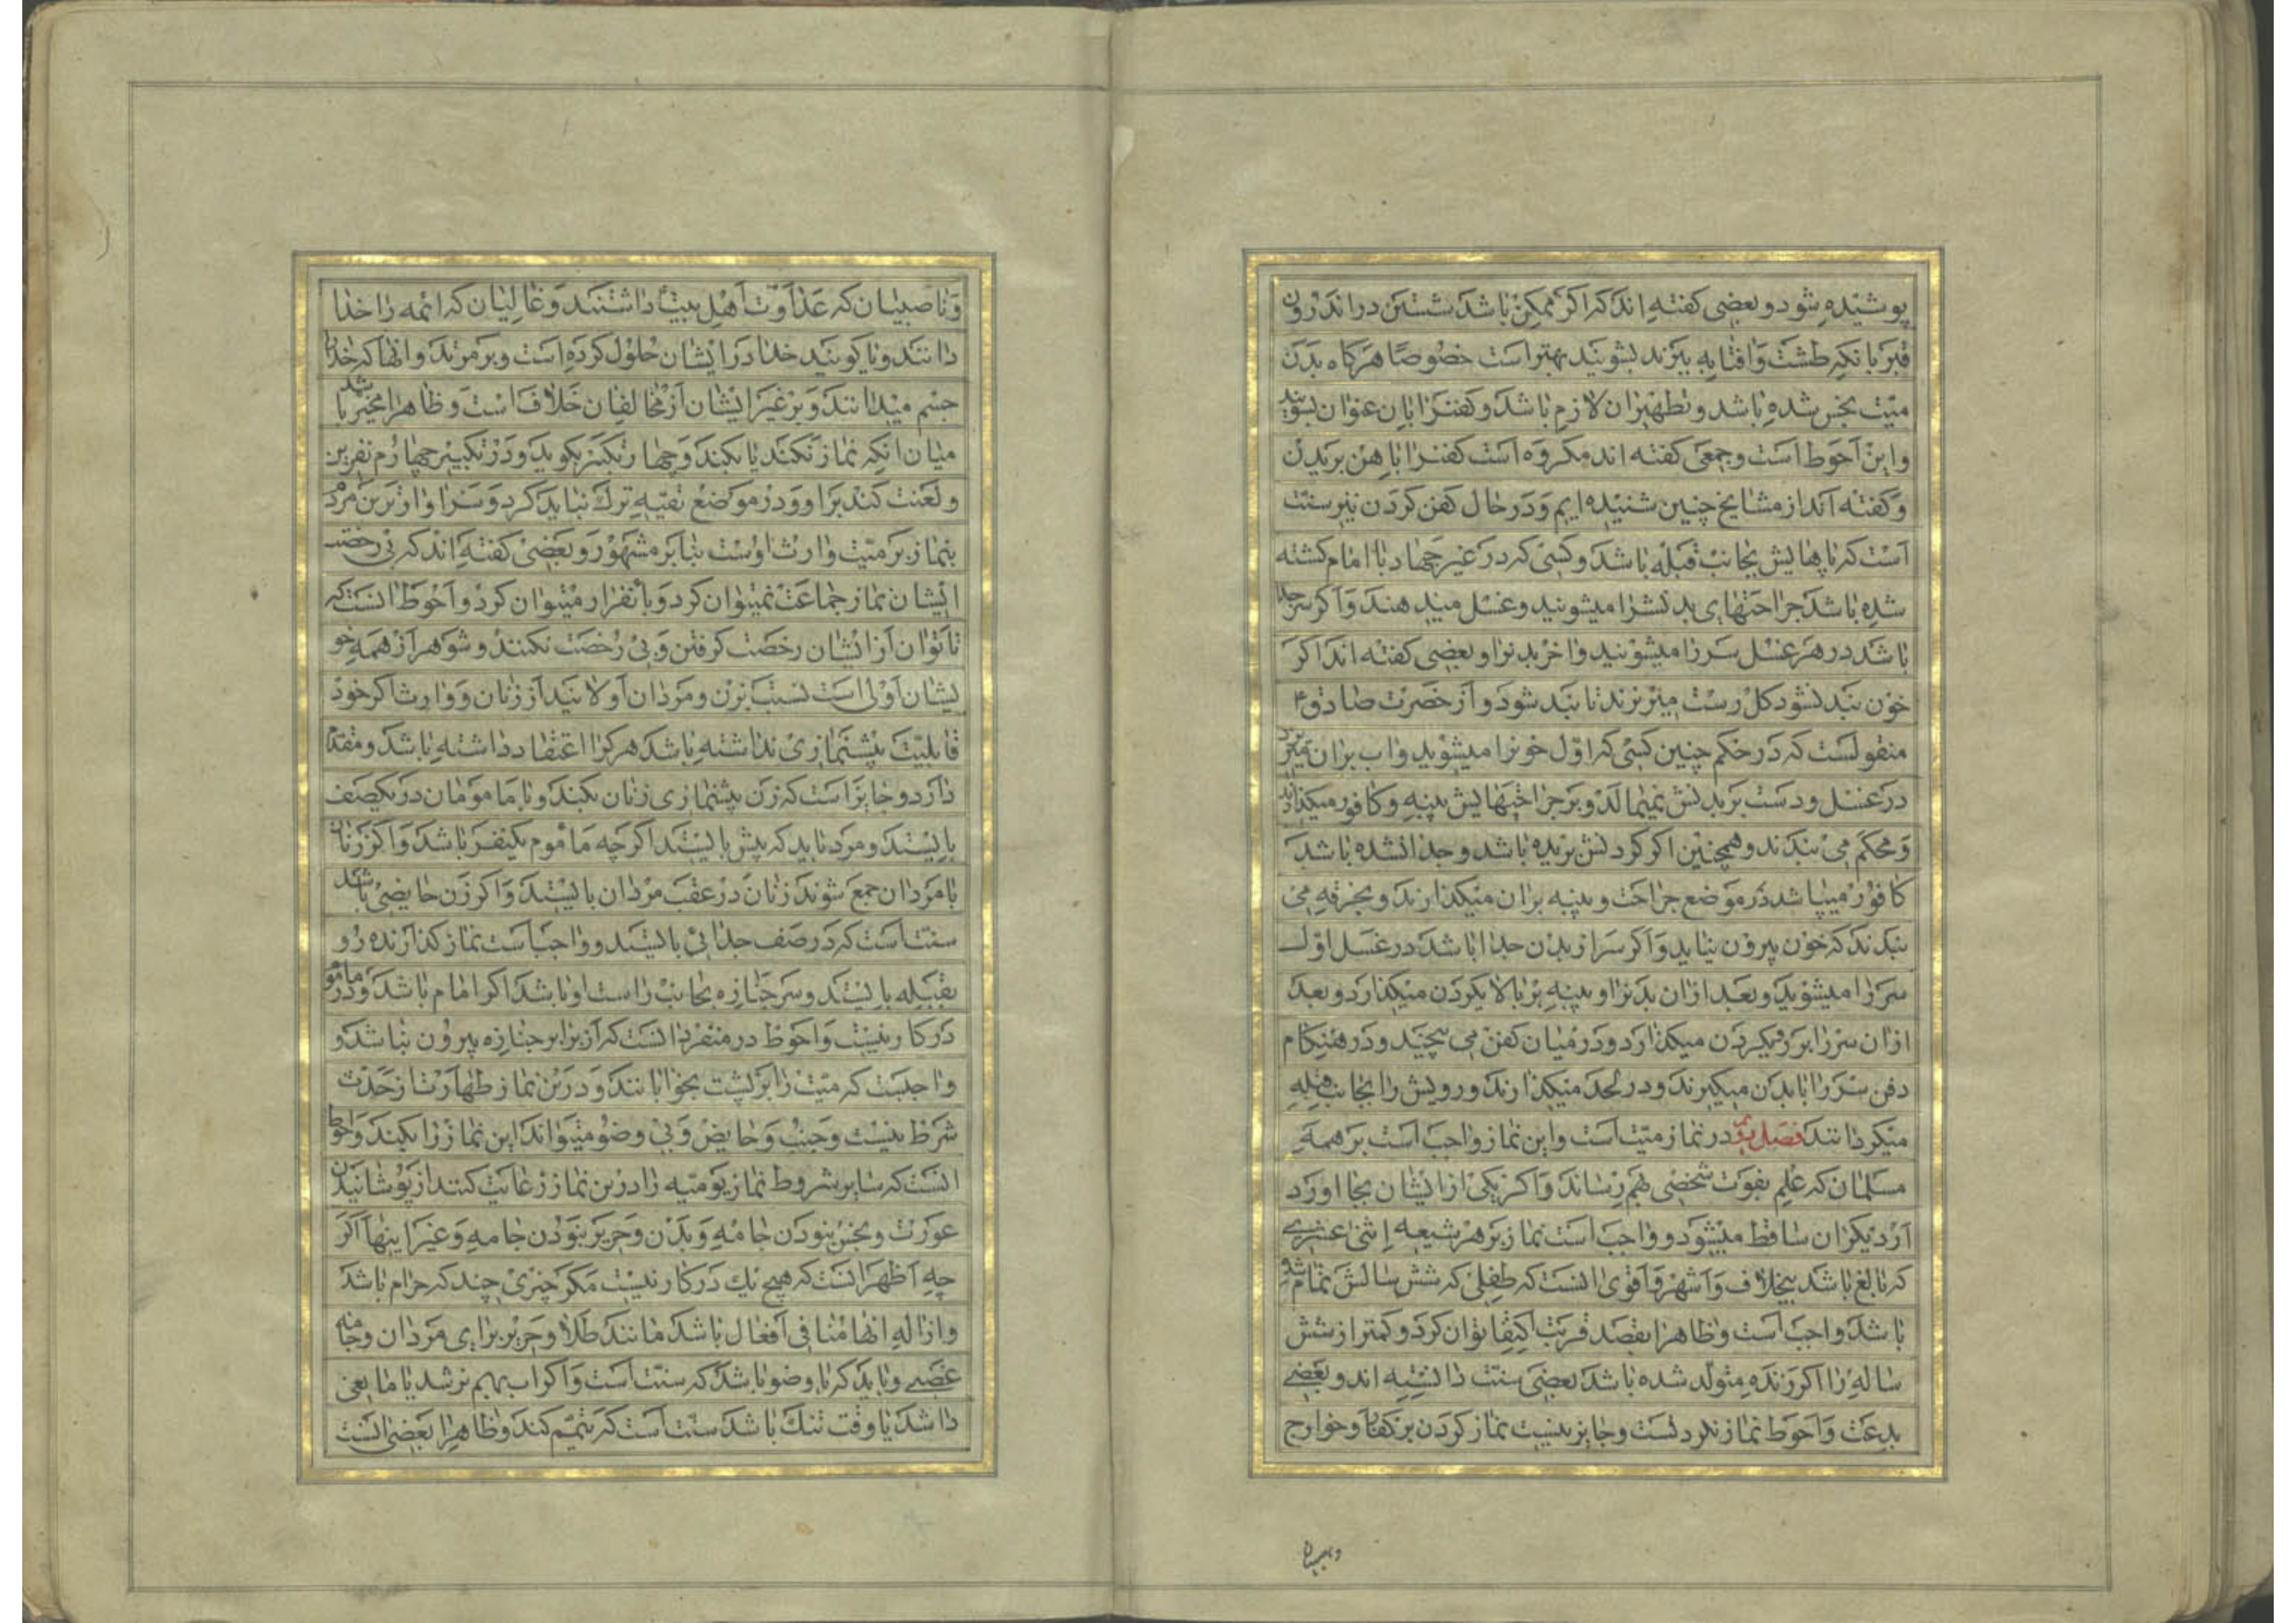 پوشیده شود و بعضی کفته اند که اکر ممکن باشد شستن در اندرون
قبر بانکه طشت و افتابه ببرند بشویند بهتر است خصوصا هرکاه بدن
میت نجس شده باشد و تطهیران لازم باشد و کفنرا باین عنوان بشویند
واین احوط است وجمعی کفته اند مکروه است کفنرا باهن بریدن
وکفته اند از مشایخ چنین شنیده ایم و در حال کفن کردن نیز سنت
است که پاهایش بجانب قبله باشد و کسی که در غیر جهاد با امام کشته
شده باشد جراحتهای بدنشرا میشویند و غسل میدهند و اکر سر جدا
باشد در هر غسل سر را میشویند واخر بدنرا و بعضی کفته اند اکر
خون بند نشود کل رست میریزند تا بند شود و از حضرت صادق ع
منقولست که در حکم چنین کسی که اول خونرا میشوید واب بران میریزد
در غسل و دست بر بدنش نمیمالد و بر جراحتهایش پنبه و کافور میکذارند
و محکم می بندند و همچنین اکر کردنش بریده باشد و جدا نشده باشد
کافور میپاشد در موضع جراحت و پنبه بران میکذارند و بخرقه می
بندند که خون بیرون نیاید و اکر سر از بدن جدا باشد در غسل اول
سر را میشوید و بعد ازان بدنرا و پنبه بر بالای کردن میکذارد و بعد
ازان سر را بر روی کردن میکذارد و در میان کفن می پیچید و در هنکام
دفن سر را با بدن میکیرند و در لحد میکذارند و رویش را بجانب قبله
میکردانند فصل در نماز میت است واین نماز واجب است بر همه
مسلمان که علم بفوت شخصی بهم رساند و اکر یکی از ایشان بجا اورد
از دیکران ساقط میشود و واجب است نماز بر هر شیعه اثنی عشری
که بالغ باشد بیخلاف و اشهر و اقوی انست که طفلی که شش سالش تمام شده
باشد واجب است و ظاهرا بقصد قربت اکتفا توان کرد و کمتر از شش
ساله را اکر زنده متولد شده باشد بعضی سنت دانسته اند و بعضی
بدعت و احوط نماز نکردنست و جایز نیست نماز کردن بر کفار و خوارج
وناصبیان
وناصبیان که عداوت اهل بیت داشتند و غالیان که ائمه را خدا
دانند و یا کویند خدا در ایشان حلول کرده است و بر مرتد و انها که خدا را
جسم میدانند و بر غیر ایشان از مخالفان خلاف است و ظاهرا مخیر باشد
میان انکه نماز نکند یا بکند و چهار تکبیر بکوید و در تکبیر چهارم نفرین
ولعنت کند بر او و در موضع تقیه ترک نباید کرد و سزاوارترین مردم
بنماز بر میت وارث اوست بنا بر مشهور و بعضی کفته اند که بی رخصت
ایشان نماز جماعت نمیتوان کرد و بانفراد میتوان کرد و احوط انست که
تا توان از ایشان رخصت کرفتن و بی رخصت نکنند و شوهر از همه خو
یشان اولی است نسبت بزن و مردان اولایند از زنان و وارث اکر خود
قابلیت پیشنمازی نداشته باشد هرکرا اعتقاد داشته باشد و مقدم
دارد و جایز است که زن پیشنمازی زنان بکند و با مامومان در یکصف
بایستد و مرد باید که پیش بایستد اکرچه ماموم یکنفر باشد و اکر زنان
با مردان جمع شوند زنان در عقب مردان بایستند و اکر زن حایضی باشد
سنت است که در صف جدائی بایستد و واجب است نماز کذارنده رو
بقبله بایستد و سر جنازه بجانب راست او باشد اکر امام باشد و در ماموم
در کار نیست و احوط در منفرد انست که از برابر جنازه بیرون نباشد و
واجبست که میت را بر پشت بخوابانند و در این نماز طهارت از حدث
شرط نیست و جنب و حایض و بی وضو میتواند این نماز را بکند و احوط
انست که سایر شروط نماز یومیه را در این نماز رعایت کنند از پوشانیدن
عورت و نجس نبودن جامه و بدن و حریر نبودن جامه و غیر اینها اکر
چه اظهر انست که هیچ یک در کار نیست مکر چیزی چند که حرام باشد
وازاله انها منافی افعال باشد مانند طلا و حریر برای مردان و جامه
غصبی و باید که با وضو باشد که سنت است و اکر اب بهم نرسد یا مانعی
داشد یا وقت تنک باشد سنت است که تیمم کند و ظاهرا بعضی انست